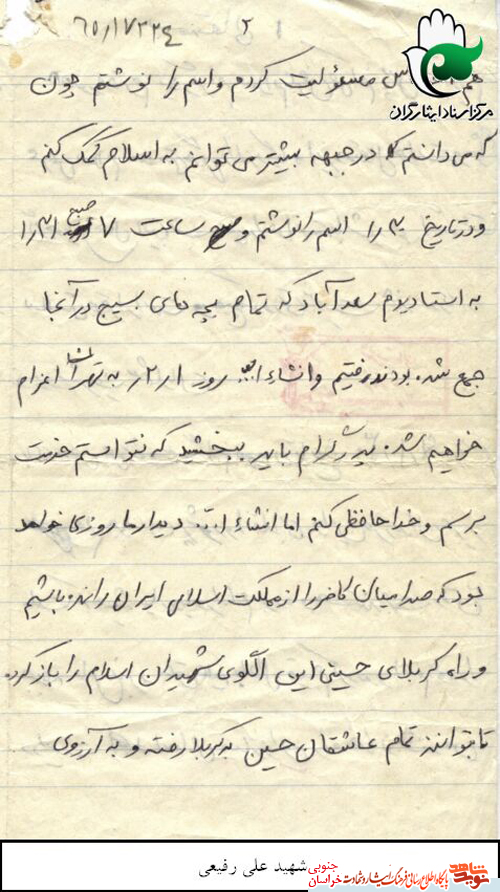 ۲
۶۵/۱۷۳۲۴
مرکز اسناد ایثارگران
هم احساس مسئولیت کردم و اسم را نوشتم چون
که می دانستم که در جبهه بیشتر می توانم به اسلام کمک کنم
و در تاریخ ۳۰ را اسم را نوشتم و صبح ساعت ۷ صبح ۳۱ را
به استادیوم سعدآباد که تمام بچه های بسیج در آنجا
جمع شده بودند رفتیم و انشاءا... روز ۲ر۱ به تهران اعزام
خواهیم شد. پدر گرام باید ببخشید که نتوانستم خدمت
برسم و خداحافظی کنم اما انشاءا... دیدار ما روزی خواهد
بود که صدامیان کافر را از مملکت اسلامی ایران رانده باشیم
و راه کربلای حسینی این الگوی شهیدان اسلام را باز کرده
تا بتوانند تمام عاشقان حسین به کربلا رفته و به آرزوی
شهید علی رفیعی
خراسان جنوبی
پایگاه اطلاع رسانی فرهنگ ایثار و شهادت
نوید شاهد